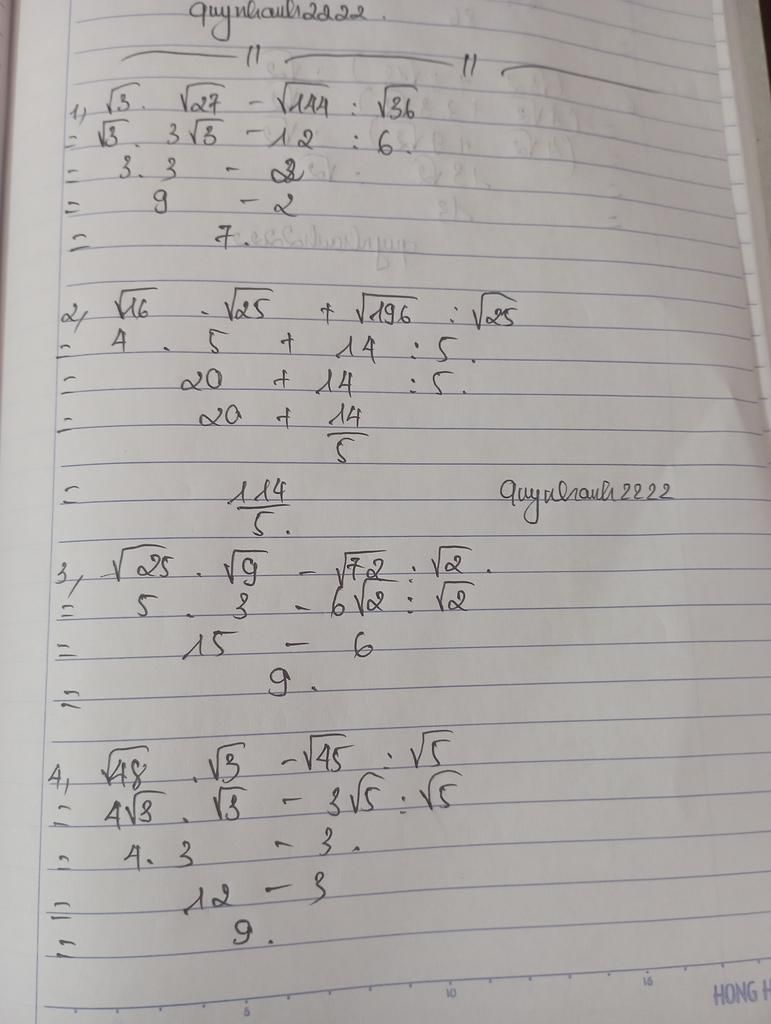 quynhanh2222.
1, √3 . √27 - √144 : √36
= √3 . 3√3 - 12 : 6.
= 3.3 - 2
= 9 - 2
= 7.
2, √16 . √25 + √196 : √25
= 4 . 5 + 14 : 5.
= 20 + 14 : 5.
= 20 + 14/5
= 114/5.
quynhanh2222
3, √25 . √9 - √72 : √2 .
= 5 . 3 - 6√2 : √2
= 15 - 6
= 9.
4, √48 . √3 - √45 : √5
= 4√3 . √3 - 3√5 : √5
= 4. 3 - 3.
= 12 - 3
= 9.
5 10 15 HONG H